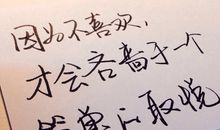 因为不喜欢,
才会吝啬于一个
简单的取悦